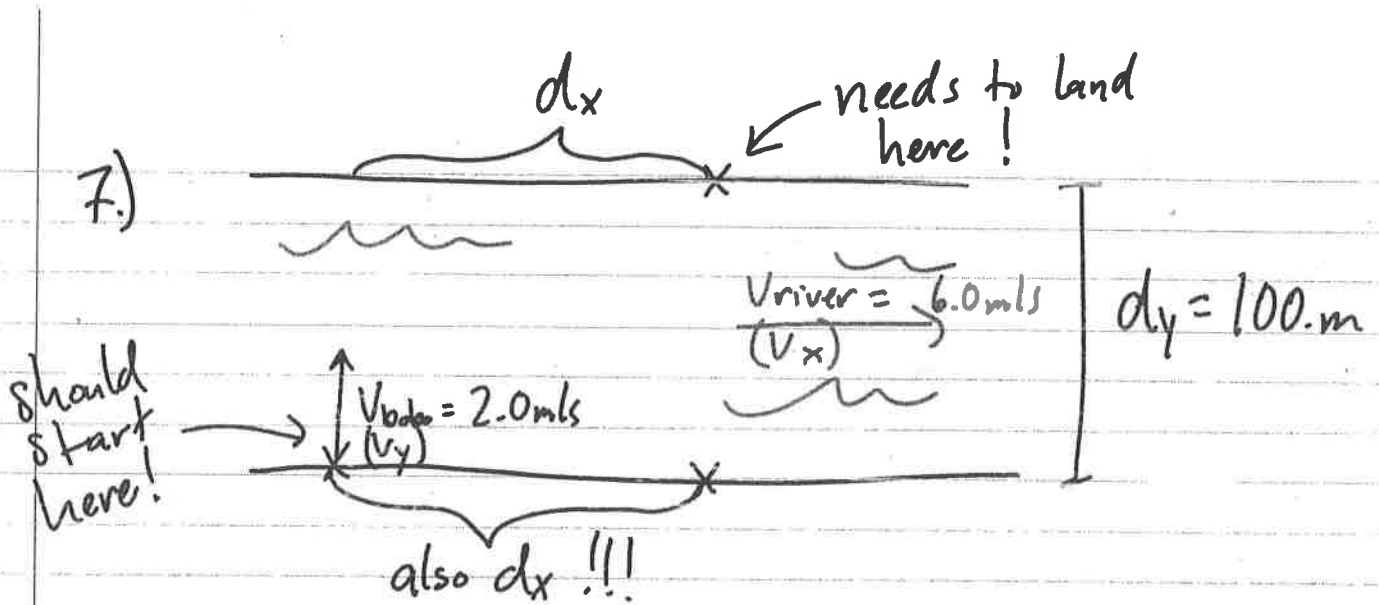 dx
needs to land
here !
7.)
Vriver = 6.0m/s
(Vx)
dy = 100.m
should
start
here!
= 2.0m/s
(Vy)
also dx !!!